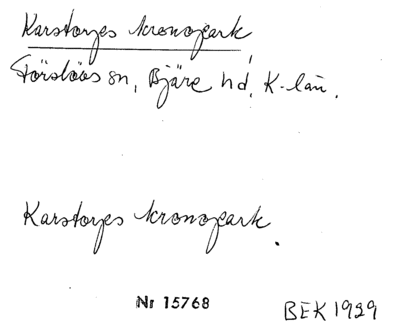 Karstorps kronopark
Förslövs sn, Bjäre hd, K-län.
Karstorps kronopark.
Nr 15768
BEK 1929